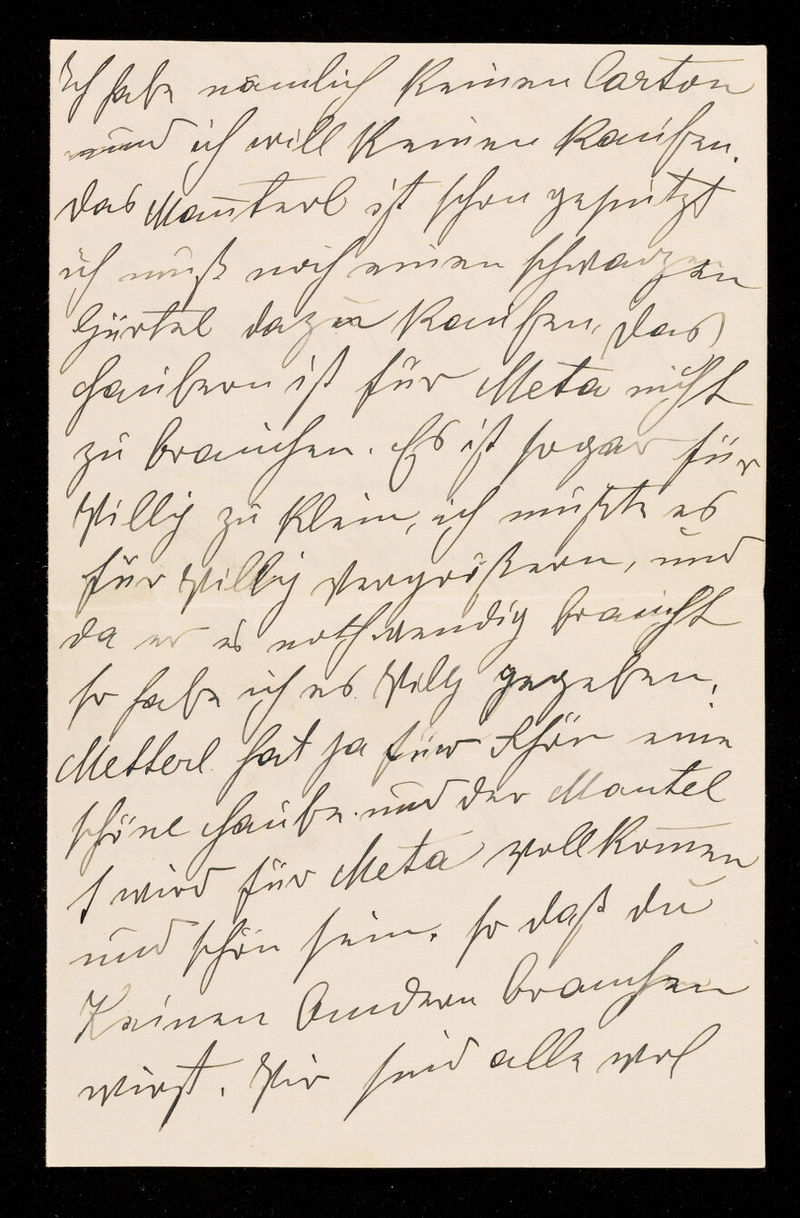 Ich habe nämlich keinen Carton
und ich will keinen kaufen.
das Manterl ist schon geputzt
ich muß noch einen schwarzen
Gürtel dazu kaufen, das
Haubern ist für Meta nicht
zu brauchen. Es ist sogar für
Willy zu klein, ich mußte es
für Willy vergrößern, und
da er es nothwendig braucht
so habe ich es Willy gegeben,
Metterl hat ja für Schön eine
schöne Haube und der Mantel
wird für Meta vollkomen
und schön sein. so daß du
Keinen Andern brauchen
wirst. Wir sind alle wol